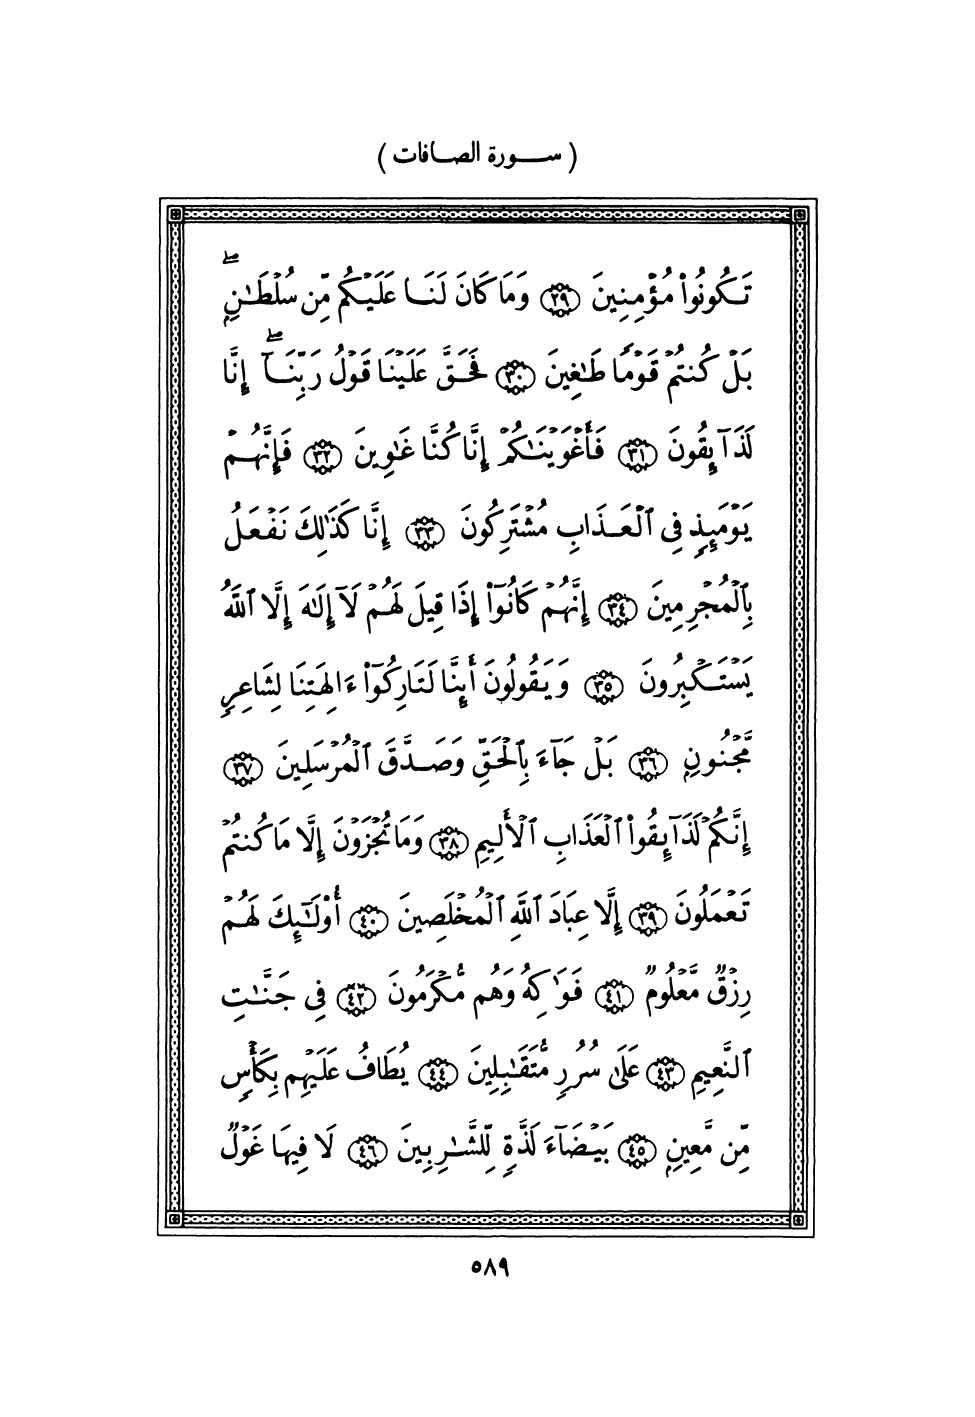 ( ســورة الصـافات )
تَكُونُوا۟ مُؤْمِنِينَ ٢٩ وَمَا كَانَ لَنَا عَلَيْكُم مِّن سُلْطَٰنٍۭ ۖ
بَلْ كُنتُمْ قَوْمًا طَٰغِينَ ٣٠ فَحَقَّ عَلَيْنَا قَوْلُ رَبِّنَآ ۖ إِنَّا
لَذَآئِقُونَ ٣١ فَأَغْوَيْنَٰكُمْ إِنَّا كُنَّا غَٰوِينَ ٣٢ فَإِنَّهُمْ
يَوْمَئِذٍ فِى ٱلْعَذَابِ مُشْتَرِكُونَ ٣٣ إِنَّا كَذَٰلِكَ نَفْعَلُ
بِٱلْمُجْرِمِينَ ٣٤ إِنَّهُمْ كَانُوٓا۟ إِذَا قِيلَ لَهُمْ لَآ إِلَٰهَ إِلَّا ٱللَّهُ
يَسْتَكْبِرُونَ ٣٥ وَيَقُولُونَ أَئِنَّا لَتَارِكُوٓا۟ ءَالِهَتِنَا لِشَاعِرٍ
مَّجْنُونٍۭ ٣٦ بَلْ جَآءَ بِٱلْحَقِّ وَصَدَّقَ ٱلْمُرْسَلِينَ ٣٧
إِنَّكُمْ لَذَآئِقُوا۟ ٱلْعَذَابِ ٱلْأَلِيمِ ٣٨ وَمَا تُجْزَوْنَ إِلَّا مَا كُنتُمْ
تَعْمَلُونَ ٣٩ إِلَّا عِبَادَ ٱللَّهِ ٱلْمُخْلَصِينَ ٤٠ أُو۟لَٰٓئِكَ لَهُمْ
رِزْقٌ مَّعْلُومٌ ٤١ فَوَٰكِهُ وَهُم مُّكْرَمُونَ ٤٢ فِى جَنَّٰتِ
ٱلنَّعِيمِ ٤٣ عَلَىٰ سُرُرٍ مُّتَقَٰبِلِينَ ٤٤ يُطَافُ عَلَيْهِم بِكَأْسٍ
مِّن مَّعِينٍۭ ٤٥ بَيْضَآءَ لَذَّةٍ لِّلشَّٰرِبِينَ ٤٦ لَا فِيهَا غَوْلٌ
٥٨٩